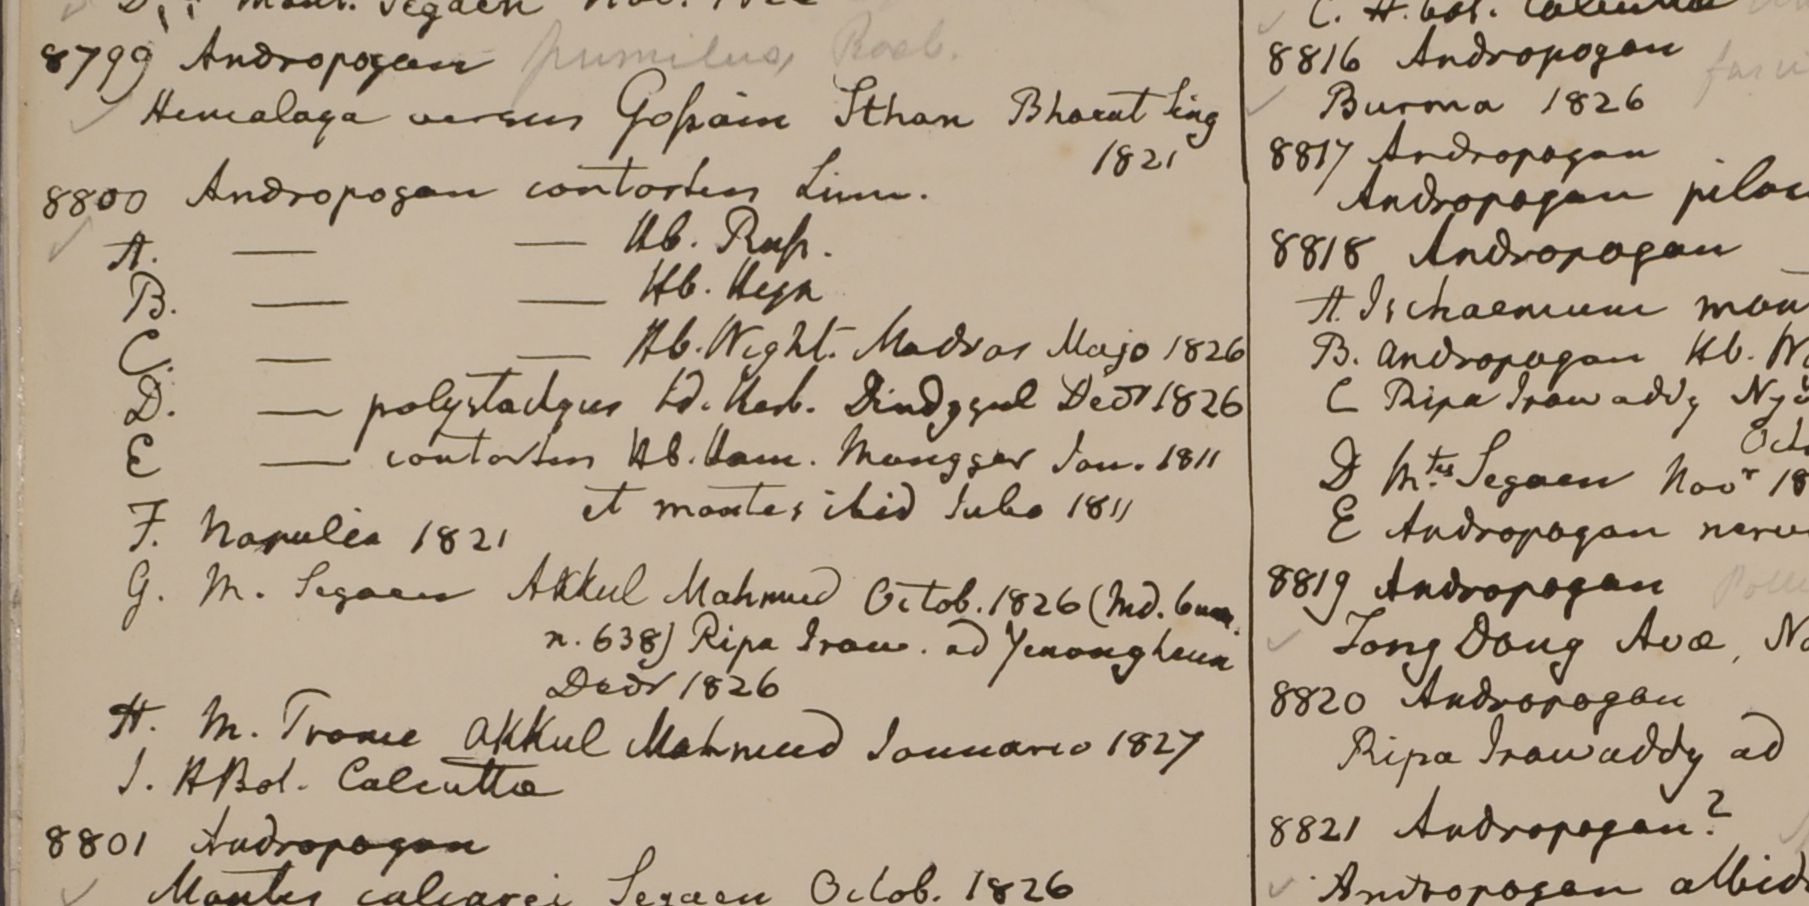 Mont. Segaen Nov. 1826
8799 Andropogon pumilus, Roxb.
Hemalaya versus Gossain Sthan Bharut Sing
1821
8800 Andropogon contortus Linn.
A. — — Hb. Russ.
B. — — Hb. Heyn
C. — — Hb. Wight. Madras Majo 1826
D. — polystachyus Id. Herb. Dindygul Decr 1826
E — contortus Hb. Ham. Mongger Jan. 1811
et montes ibid Julio 1811
F. Napulia 1821
G. M. Segaen Akkul Mahmud Octob. 1826 (Md. bum.
n. 638) Ripa Iraw. ad Yenangheun
Decr 1826
H. M. Trome Akkul Mahmud Januario 1827
I. HBot. Calcutta
8801 Andropogon
Montes calcarei Segaen Octob. 1826
C. H. bot. Calcutta
8816 Andropogon
Burma 1826
8817 Andropogon
Andropogon pilos
8818 Andropogon
A. Ischaemum
B. Andropogon Hb.
C Ripa Irawaddy
D M.tes Segaen Novr 18
E Andropogon
8819 Andropogon
Tong Dong Avae,
8820 Andropogon
Ripa Irawaddy ad
8821 Andropogon?
Andropogon albid